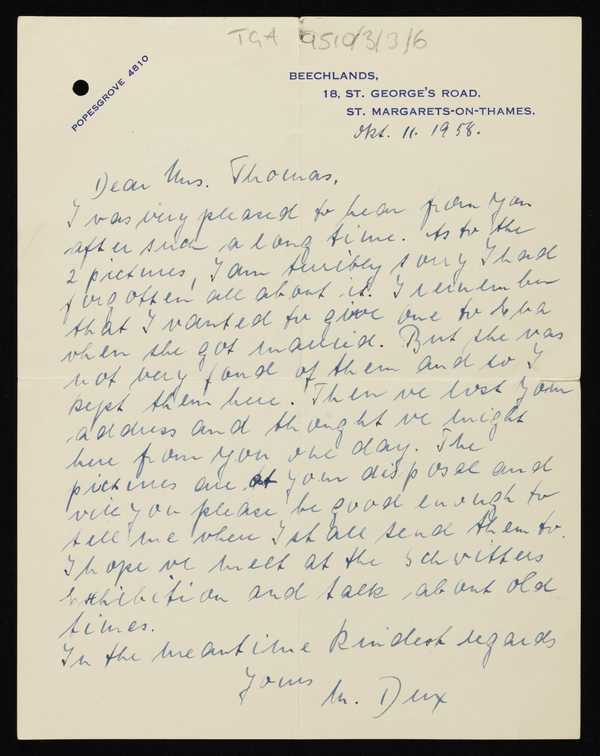 TGA 9510/3/3/6
POPESGROVE 4810
BEECHLANDS,
18, ST. GEORGE'S ROAD,
ST. MARGARETS-ON-THAMES.
Okt. 11. 1958.
Dear Mrs. Thomas,
I vas very pleased to hear from you
after such a long time. As to the
2 pictures, I am terribly sorry I had
forgotten all about it. I remember
that I vanted to give one to Eva
vhen she got married. But she vas
not very fond of them and so I
kept them here. Then ve lost your
address and thought ve might
here from you one day. The
pictures are at your disposal and
vill you please be good enough to
tell me vhere I shall send them to.
I hope ve meet at the Schwitters
Exhibition and talk about old
times.
In the meantime kindest regards
Yours
M. Dux